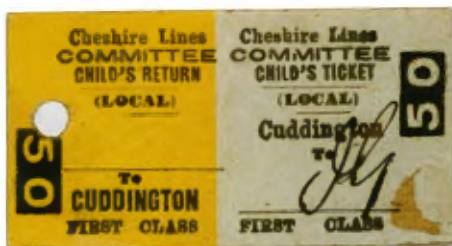 Cheshire Lines
COMMITTEE
CHILD'S RETURN
(LOCAL)
50
To
CUDDINGTON
FIRST CLASS
Cheshire Lines
COMMITTEE
CHILD'S TICKET
(LOCAL)
50
Cuddington
To
FIRST CLASS